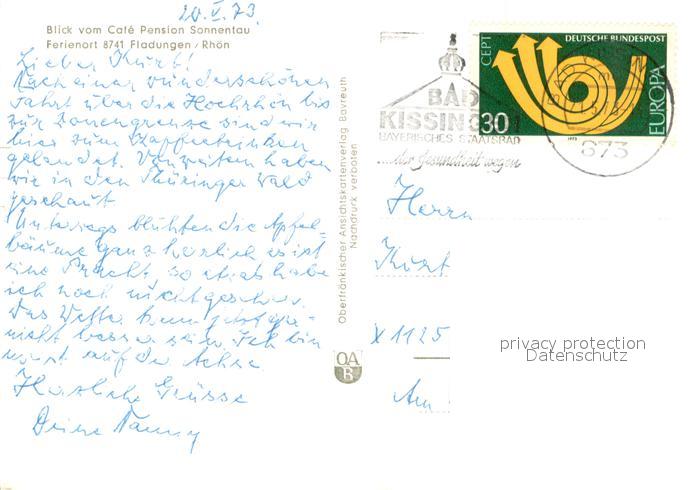 20.V.73.
Blick vom Café Pension Sonnentau
Ferienort 8741 Fladungen / Rhön
Lieber Kurt!
Nach einer wunderschönen
Fahrt über die Hochrhön bis
zur Zonengrenze sind wir
hier zum Kaffeetrinken
gelandet. Von weitem haben
wir in den Thüringer Wald
geschaut.
Unterwegs blühten die Apfel-
bäume ganz herrlich es ist
eine Pracht so etwas habe
ich noch nicht gesehen.
Das Wetter kann jetzt gar
nicht besser sein. Ich bin
auf der Achse
Herzliche Grüsse
Deine
Oberfränkischer Ansichtskartenverlag Bayreuth
Nachdruck verboten
OA
B
CEPT
DEUTSCHE BUNDESPOST
EUROPA
30
1973
BAD
KISSINGEN
BAYERISCHES STAATSBAD
...der Gesundheit wegen
873
Herrn
Kurt
X 1125
Am
privacy protection
Datenschutz